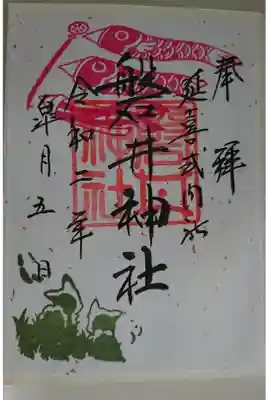 奉拝
延喜式内社
磐井神社
令和二年
皐月五日
磐井
神社